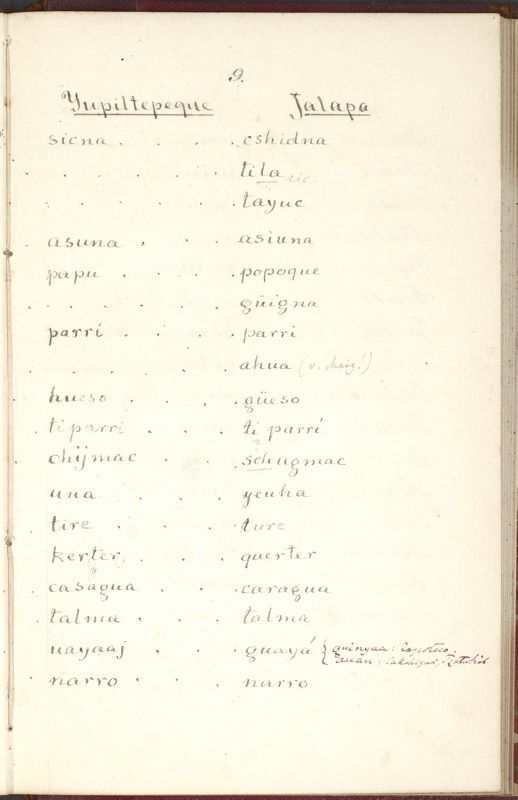 9.
Yupiltepeque Jalapa
sicna . . . . eshidna
. . . . . . . tila sic.
. . . . . . . tayuc
asuna . . . asiuna
papu . . . . popoque
. . . . . . . güigna
parrí . . . . parri
. . . . . . . ahua (v. maiz!)
hueso . . . . güeso
ti parri . . . ti parrí
chijmac . . schugmac
uua . . . yeuha
tire . . . . ture
kerter . . . querter
casagua . . caragua
talma . . . . talma
uayaaj . . . guayá { guinyaa : zapoteco.
narro . . . . narro